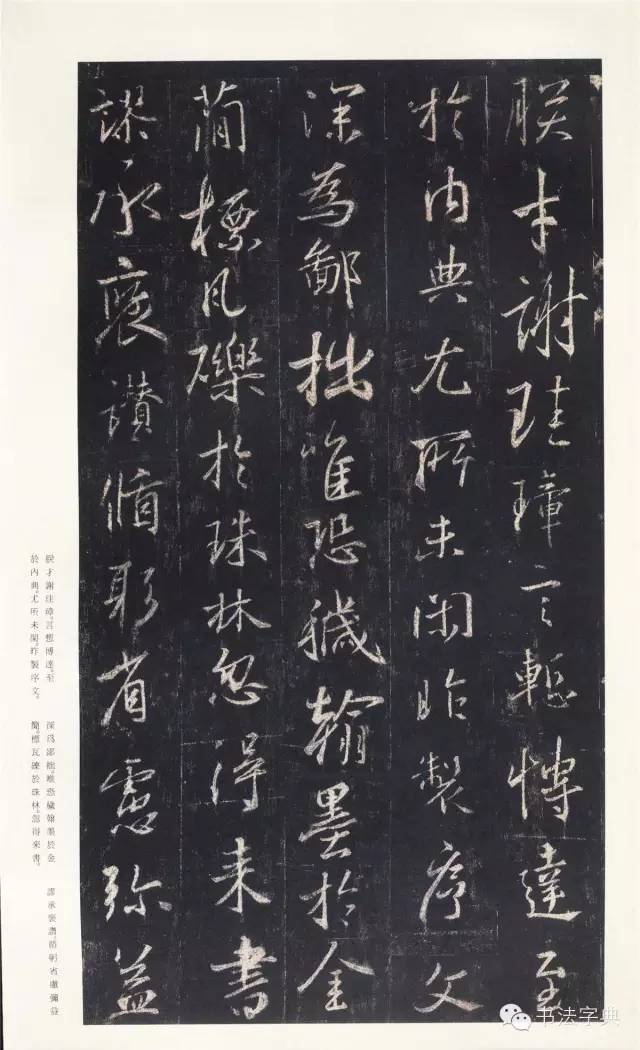 朕才謝珪璋言慙博達至
於内典尤所未閑昨製序文
深為鄙拙唯恐穢翰墨於金
簡標瓦礫於珠林忽得来書
謬承褒讃循躬省慮弥益
朕才謝珪璋。言慙博達。至
於內典。尤所未閑。昨製序文。
深爲鄙拙。唯恐穢翰墨於金
簡。標瓦礫於珠林。忽得來書。
謬承褒讚。循躬省慮。彌益
书法字典